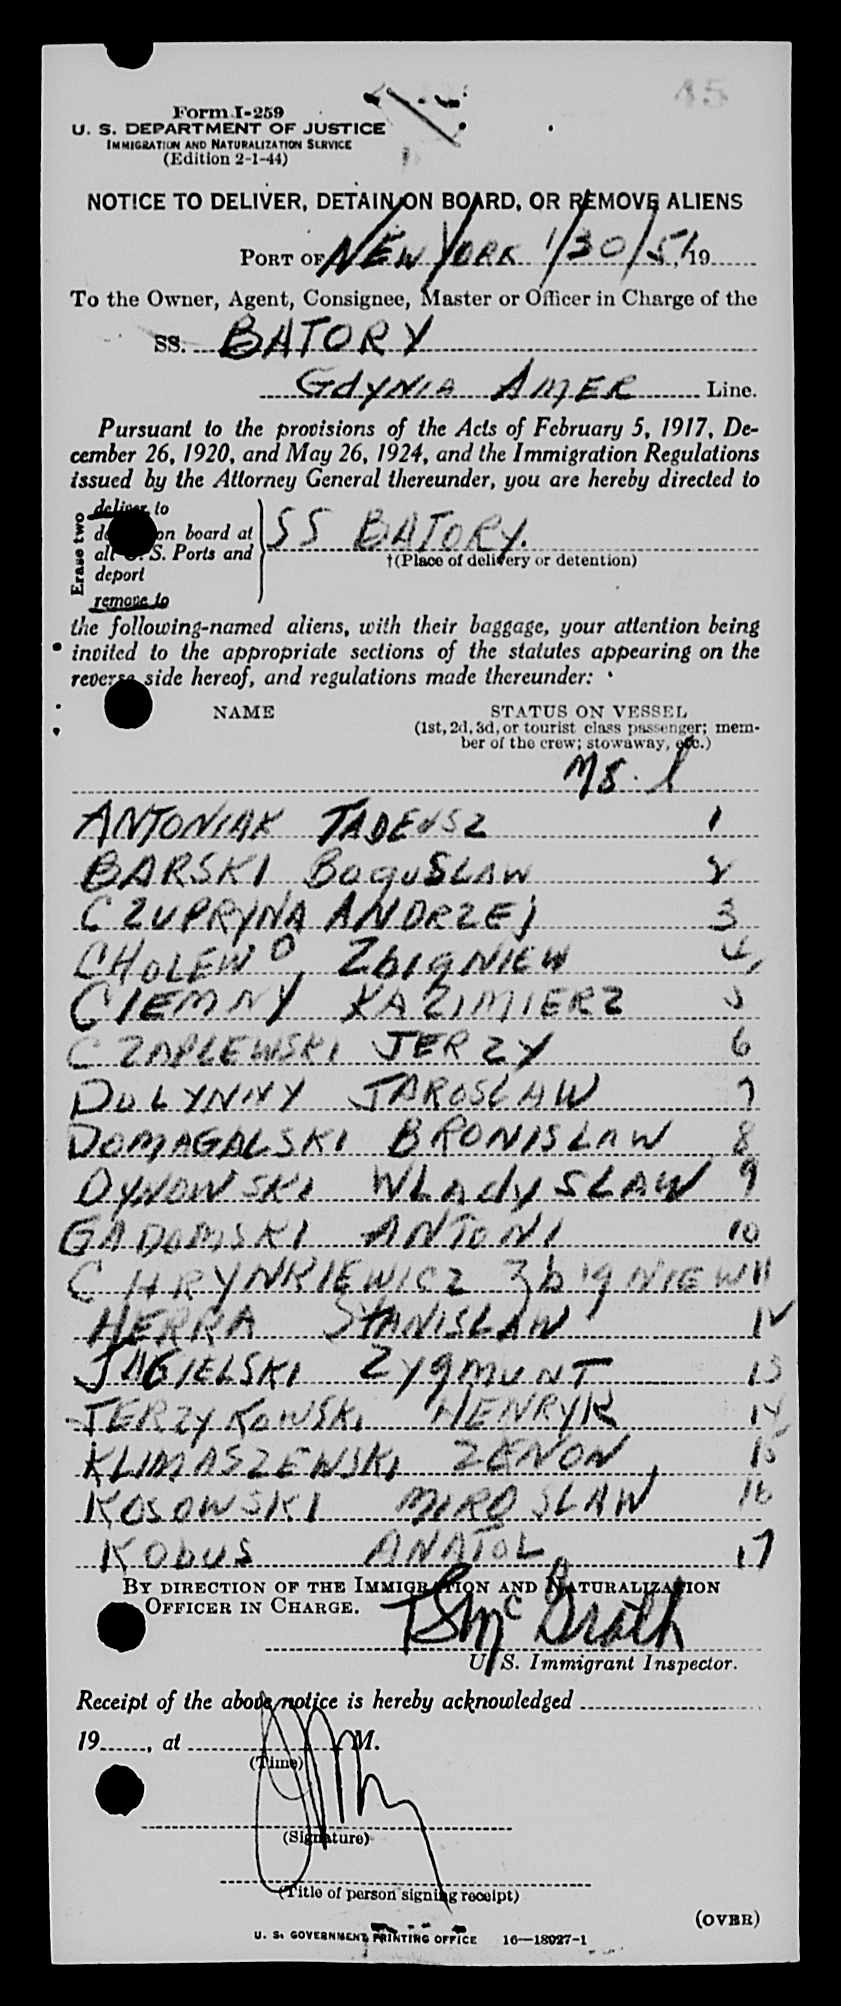 45
Form I-259
U. S. DEPARTMENT OF JUSTICE
IMMIGRATION AND NATURALIZATION SERVICE
(Edition 2-1-44)
NOTICE TO DELIVER, DETAIN ON BOARD, OR REMOVE ALIENS
PORT OF NEW YORK 1/30/51, 19
To the Owner, Agent, Consignee, Master or Officer in Charge of the
SS. BATORY
GdyNIA AMER Line.
Pursuant to the provisions of the Acts of February 5, 1917, De-
cember 26, 1920, and May 26, 1924, and the Immigration Regulations
issued by the Attorney General thereunder, you are hereby directed to
Erase two
deliver to
on board at
all U. S. Ports and
deport
remove to
SS BATORY.
†(Place of delivery or detention)
the following-named aliens, with their baggage, your attention being
invited to the appropriate sections of the statutes appearing on the
reverse side hereof, and regulations made thereunder:
NAME STATUS ON VESSEL
(1st, 2d, 3d, or tourist class passenger; mem-
ber of the crew; stowaway, etc.)
ANTONIAK TADEUSZ 1
BARSKI BOGUSLAW 2
CZUPRYNA ANDRZEJ 3
CHOLEWO ZbIgNIEW 4
CIEMNY KAZIMIERZ 5
CZAPLEWSKI JERZY 6
DOLYNNY JAROSLAW 7
DOMAGALSKI BRONISLAW 8
DYNOWSKI WLAdySLAW 9
GADOMSKI ANTONI 10
CHRYNKIEWICZ ZbIgNIEW 11
HERRA STANISLAW 12
JAGIELSKI ZYgMUNT 13
JERZYKOWSKI HENRYK 14
KLIMASZEWSKI ZENON 15
KOSOWSKI MIROSLAW 16
KObUS ANATOL 17
BY DIRECTION OF THE IMMIGRATION AND NATURALIZATION
OFFICER IN CHARGE.
McGrath
U. S. Immigrant Inspector.
Receipt of the above notice is hereby acknowledged
19, at M.
(Time)
(Signature)
(Title of person signing receipt)
(OVER)
U. S. GOVERNMENT PRINTING OFFICE 16—18027-1